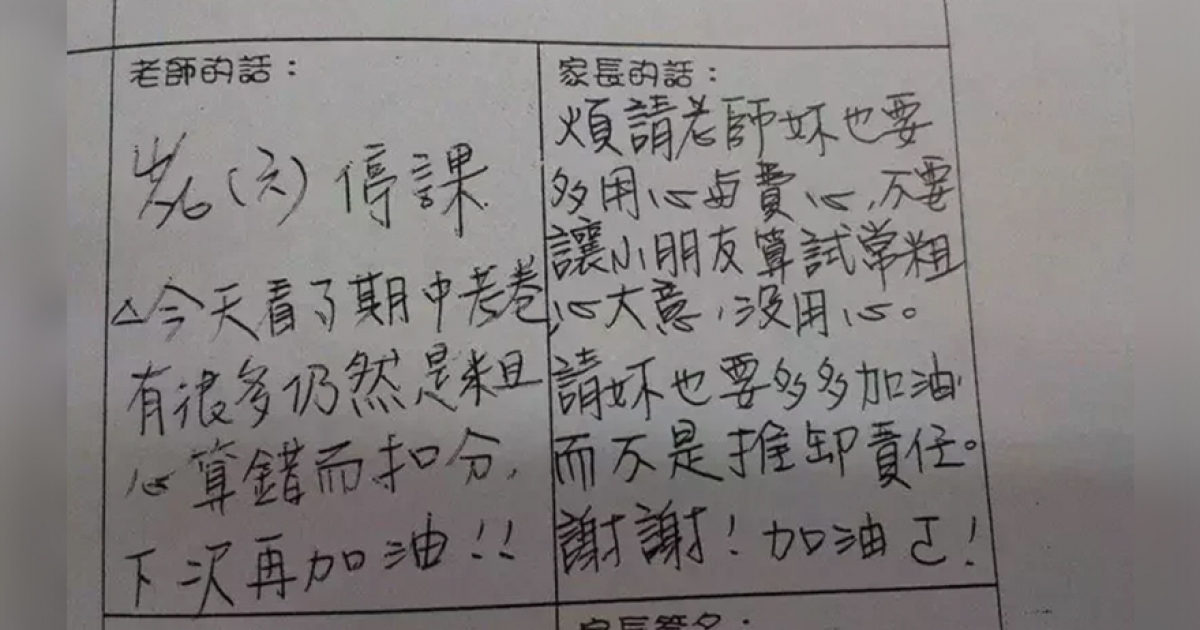 老師的話：
4/6（六）停課
△今天看了期中考卷,
有很多仍然是粗
心算錯而扣分,
下次再加油!!
家長的話：
煩請老師妳也要
多用心與費心,不要
讓小朋友算試常粗
心大意,没用心。
請妳也要多多加油
而不是推卸責任。
謝謝!加油!
家長簽名：